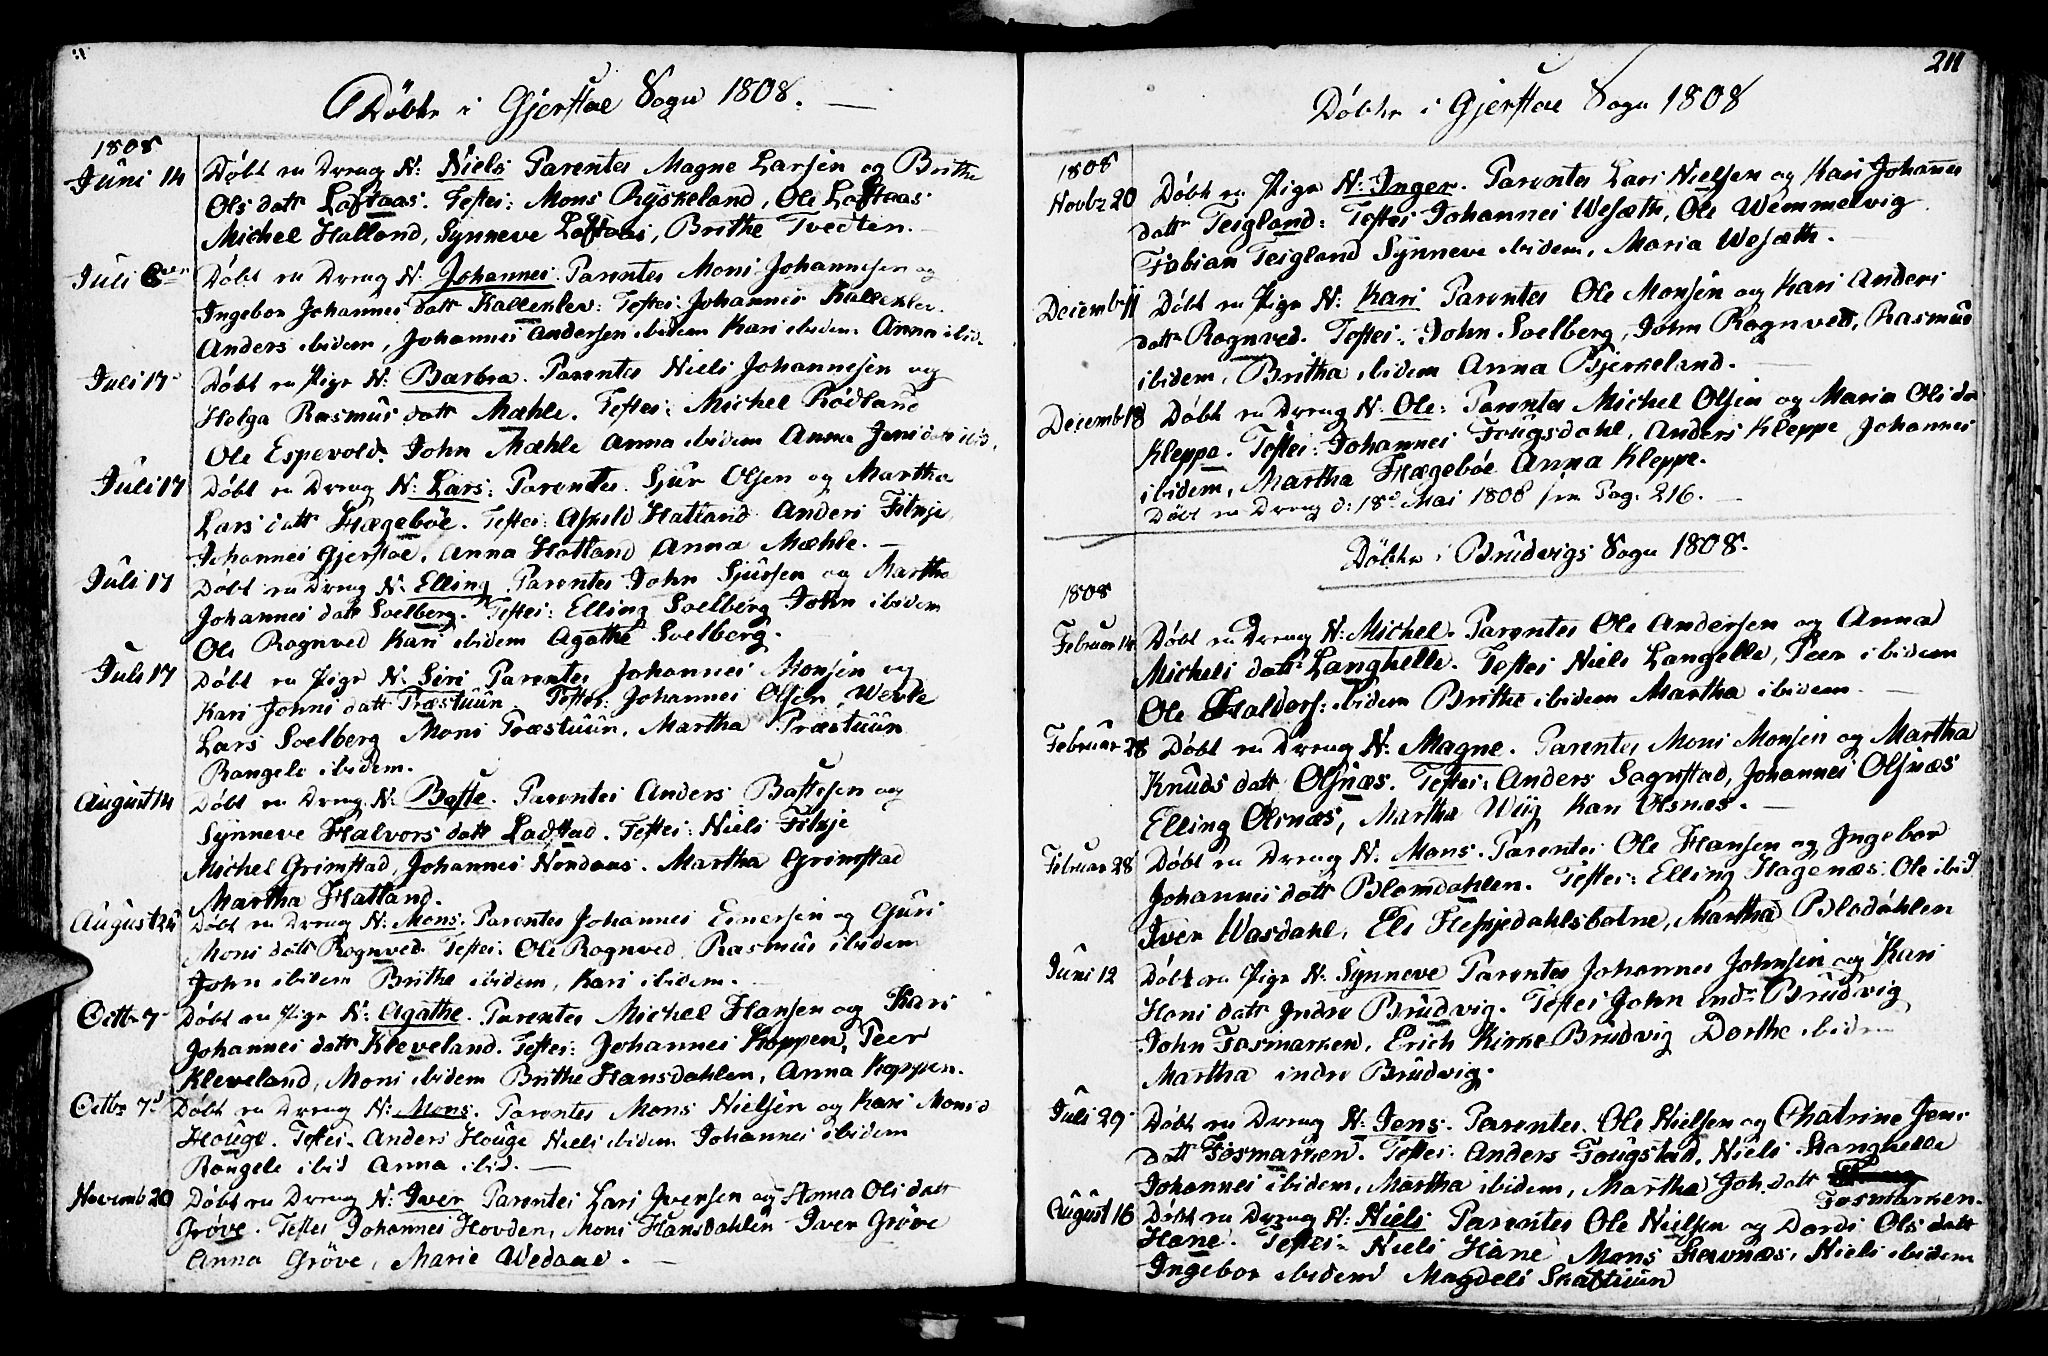 Döbte i Gjerstae Sogn 1808.
1808
Juni 14 Döbt en Dreng N: Niels Parentes Magne Larsen og Brithe
Ols datt Loftaas. Testes: Mons Ryskeland, Ole Loftaas
Michel Halland, Synneve Loftaas, Brithe Tvedten.
Juli Döbt en Dreng N: Johannes. Parentes Mons Johannesen og
Ingebor Johannes datt Kalleklev: Testes: Johannes Kalleklev.
Anders ibidem, Johannes Andersen ibidem Kari ibidem Anna ibid.
Juli 17 Döbt en Pige N: Barbra. Parentes Niels Johannesen og
Helga Rasmus datt Mæhle. Testes: Michel Rödland
Ole Espevold. John Mæhle Anna ibidem Anna Jens datt ibid.
Juli 17 Döbt en Dreng N: Lars: Parentes. Sjur Olsen og Martha
Lars datt Hægeböe. Testes: Askild Hatland Anders Fitxje
Johannes Gjerstae. Anna Hatland Anna Mæhle.
Juli 17 Döbt en Dreng N: Elling. Parentes John Sjursen og Martha
Johannes datt Soelberg. Testes: Elling Soelberg John ibidem
Ole Rognved Kari ibidem Agathe Soelberg.
Juli 17 Döbt en Pige N: Siri Parentes Johannes Monsen og
Kari Johns datt Præstuun Testes: Johannes Olsen Wevle
Lars Soelberg Mons Præstuun, Martha Præstuun
Rangele ibidem.
August 14 Döbt en Dreng N: Baste. Parentes Anders Bastesen og
Synneve Halvors datt Ladstad. Testes: Niels Fitxje
Michel Grimstad, Johannes Hondaas. Martha Grimstad
Martha Hatland.
August Döbt en Dreng N: Mons: Parentes Johannes Einersen og Guri
Mons datt Rognved. Testes: Ole Rognved Rasmus ibidem
John ibidem Brithe ibidem, Kari ibidem.
Octb 7 Döbt en Pige N: Agathe. Parentes Michel Hansen og Kari
Johannes datt Kleveland. Testes: Johannes Koppen, Peer
Kleveland, Mons ibidem Brithe Hansdahlen, Anna Koppen.
Octbr 7 Döbt en Dreng N: Mons. Parentes Mons Nielsen og Kari Monsd
Houge. Testes. Anders Houge Niels ibidem Johannes ibidem
Rangele ibid Anna ibid.
Novemb 20 Döbt en Dreng N: Iver Parentes Lars Iversen og Anna Ols datt
Gröve. Testes Johannes Hovden, Mons Hansdahlen Iver Gröve
Anna Gröve, Marie Wedaae.
211
Döbte i Gjerstae Sogn 1808
1808
Novbr 20 Döbt en Pige N: Inger. Parentes Lars Nielsen og Kari Johannes
datt Teigland: Testes Johannes Wesæth, Ole Wemmelvig
Fabian Teigland Synneve ibidem, Maria Wesæth.
Decemb 11 Döbt en Pige N: Kari Parentes Ole Monsen og Kari Anders
datt Rognved. Testes: John Soelberg, John Rognved, Rasmus
ibidem, Britha ibidem Anna Bjerkeland.
Decemb 18 Döbt en Dreng N: Ole: Parentes Michel Olsen og Maria Ols da
Kleppe. Testes: Johannes Fougsdahl, Anders Kleppe Johannes
ibidem, Martha Hægeböe Anna Kleppe.
Döbt en Dreng d: 18d Mai 1808 see Pag. 216.
Döbte i Brudvigs Sogn 1808.
1808
Februar 14 Döbt en Dreng N: Michel. Parentes Ole Andersen og Anna
Michels datt Langhelle. Testes Niels Langelle, Peer ibidem
Ole Haldors: ibidem Brithe ibidem Martha ibidem
Februar 28 Döbt en Dreng N: Magne. Parentes Mons Monsen og Martha
Knuds datt Olsnæs. Testes: Anders Sagnstad, Johannes Olsnæs
Elling Olsnæs, Martha Wiig Kari Olsnæs.
Februar 28 Döbt en Dreng N. Mons. Parentes Ole Hansen og Ingebor
Johannes datt Blomdahlen. Testes: Elling Hagenæs. Ole ibid
Iver Wasdahl, Els Hesjedahlsbotne, Martha Blodahlen
Juni 12 Döbt en Pige N: Synneve Parentes Johannes Johnsen og Kari
Hans datt Indre Brudvig. Testes John indr Brudvig
John Fosmarken, Erich Kirke Brudvig Dorthe ibidem
Martha indre Brudvig.
Juli 29 Döbt en Dreng N: Jens. Parentes. Ole Nielsen og Chatrine Jens
datt Fosmarken. Testes: Anders Fougstad, Niels Stanghelle
Johannes ibidem, Martha ibidem, Martha Joh. datt
Fosmarken.
August 16 Döbt en Dreng N: Niels Parentes Ole Nielsen og Dordi Ols datt
Hane. Testes Niels Hane Mons Havnæs, Niels ibidem
Ingebor ibidem Magdeli Skaftuun